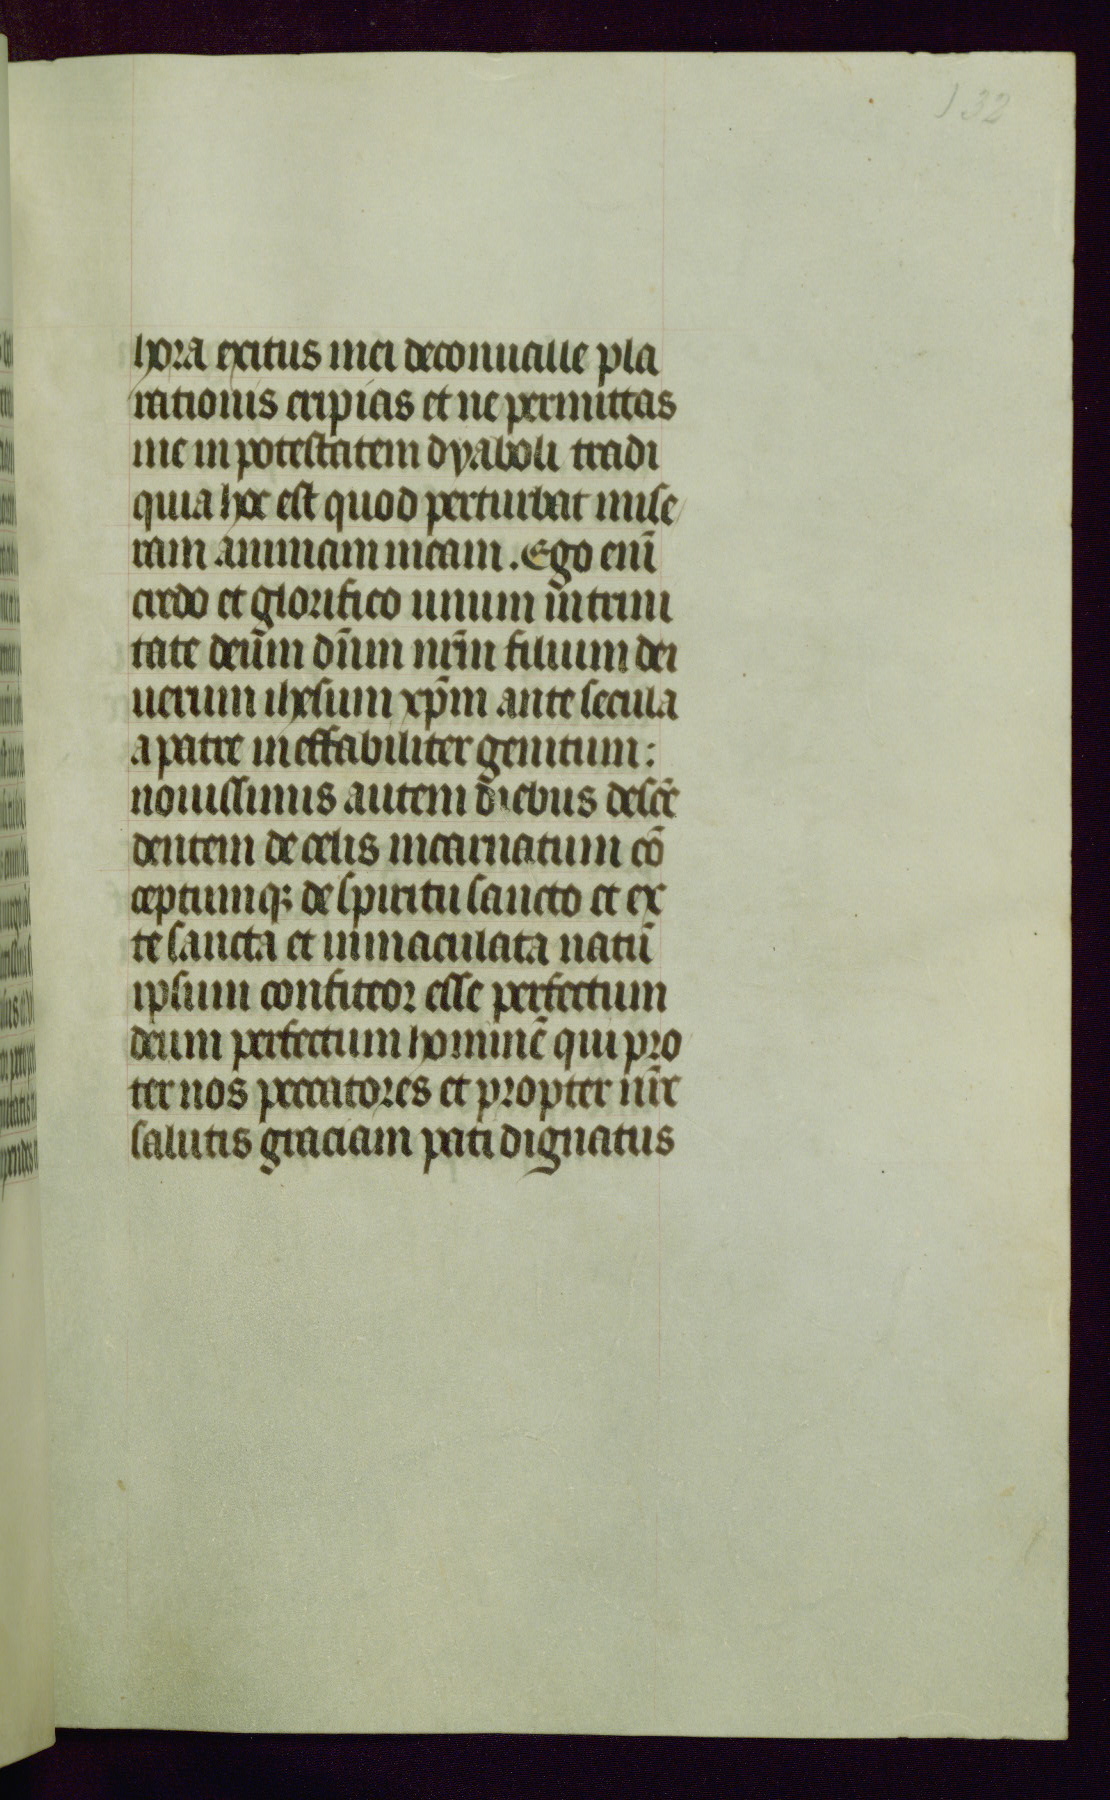 132
hora exitus mei deconualle pla
rationis eripias et ne permittas
me in potestatem dyaboli tradi
quia hoc est quod perturbat mise
ram animam meam. Ego enī
credo et glorifico unum in trini
tate deūm dn̄um nrm̄ filium dei
uerum ihesum xp̄m ante secula
a patre ineffabiliter genitum:
nouissimis autem diebus descē
dentem de celis incarnatum cō
ceptumqꝫ de spiritu sancto et ex
te sancta et immaculata natū
ipsum confiteor esse perfectum
deum perfectum hominē qui pro
ter nos peccatores et propter nr̄e
salutis graciam pati dignatus